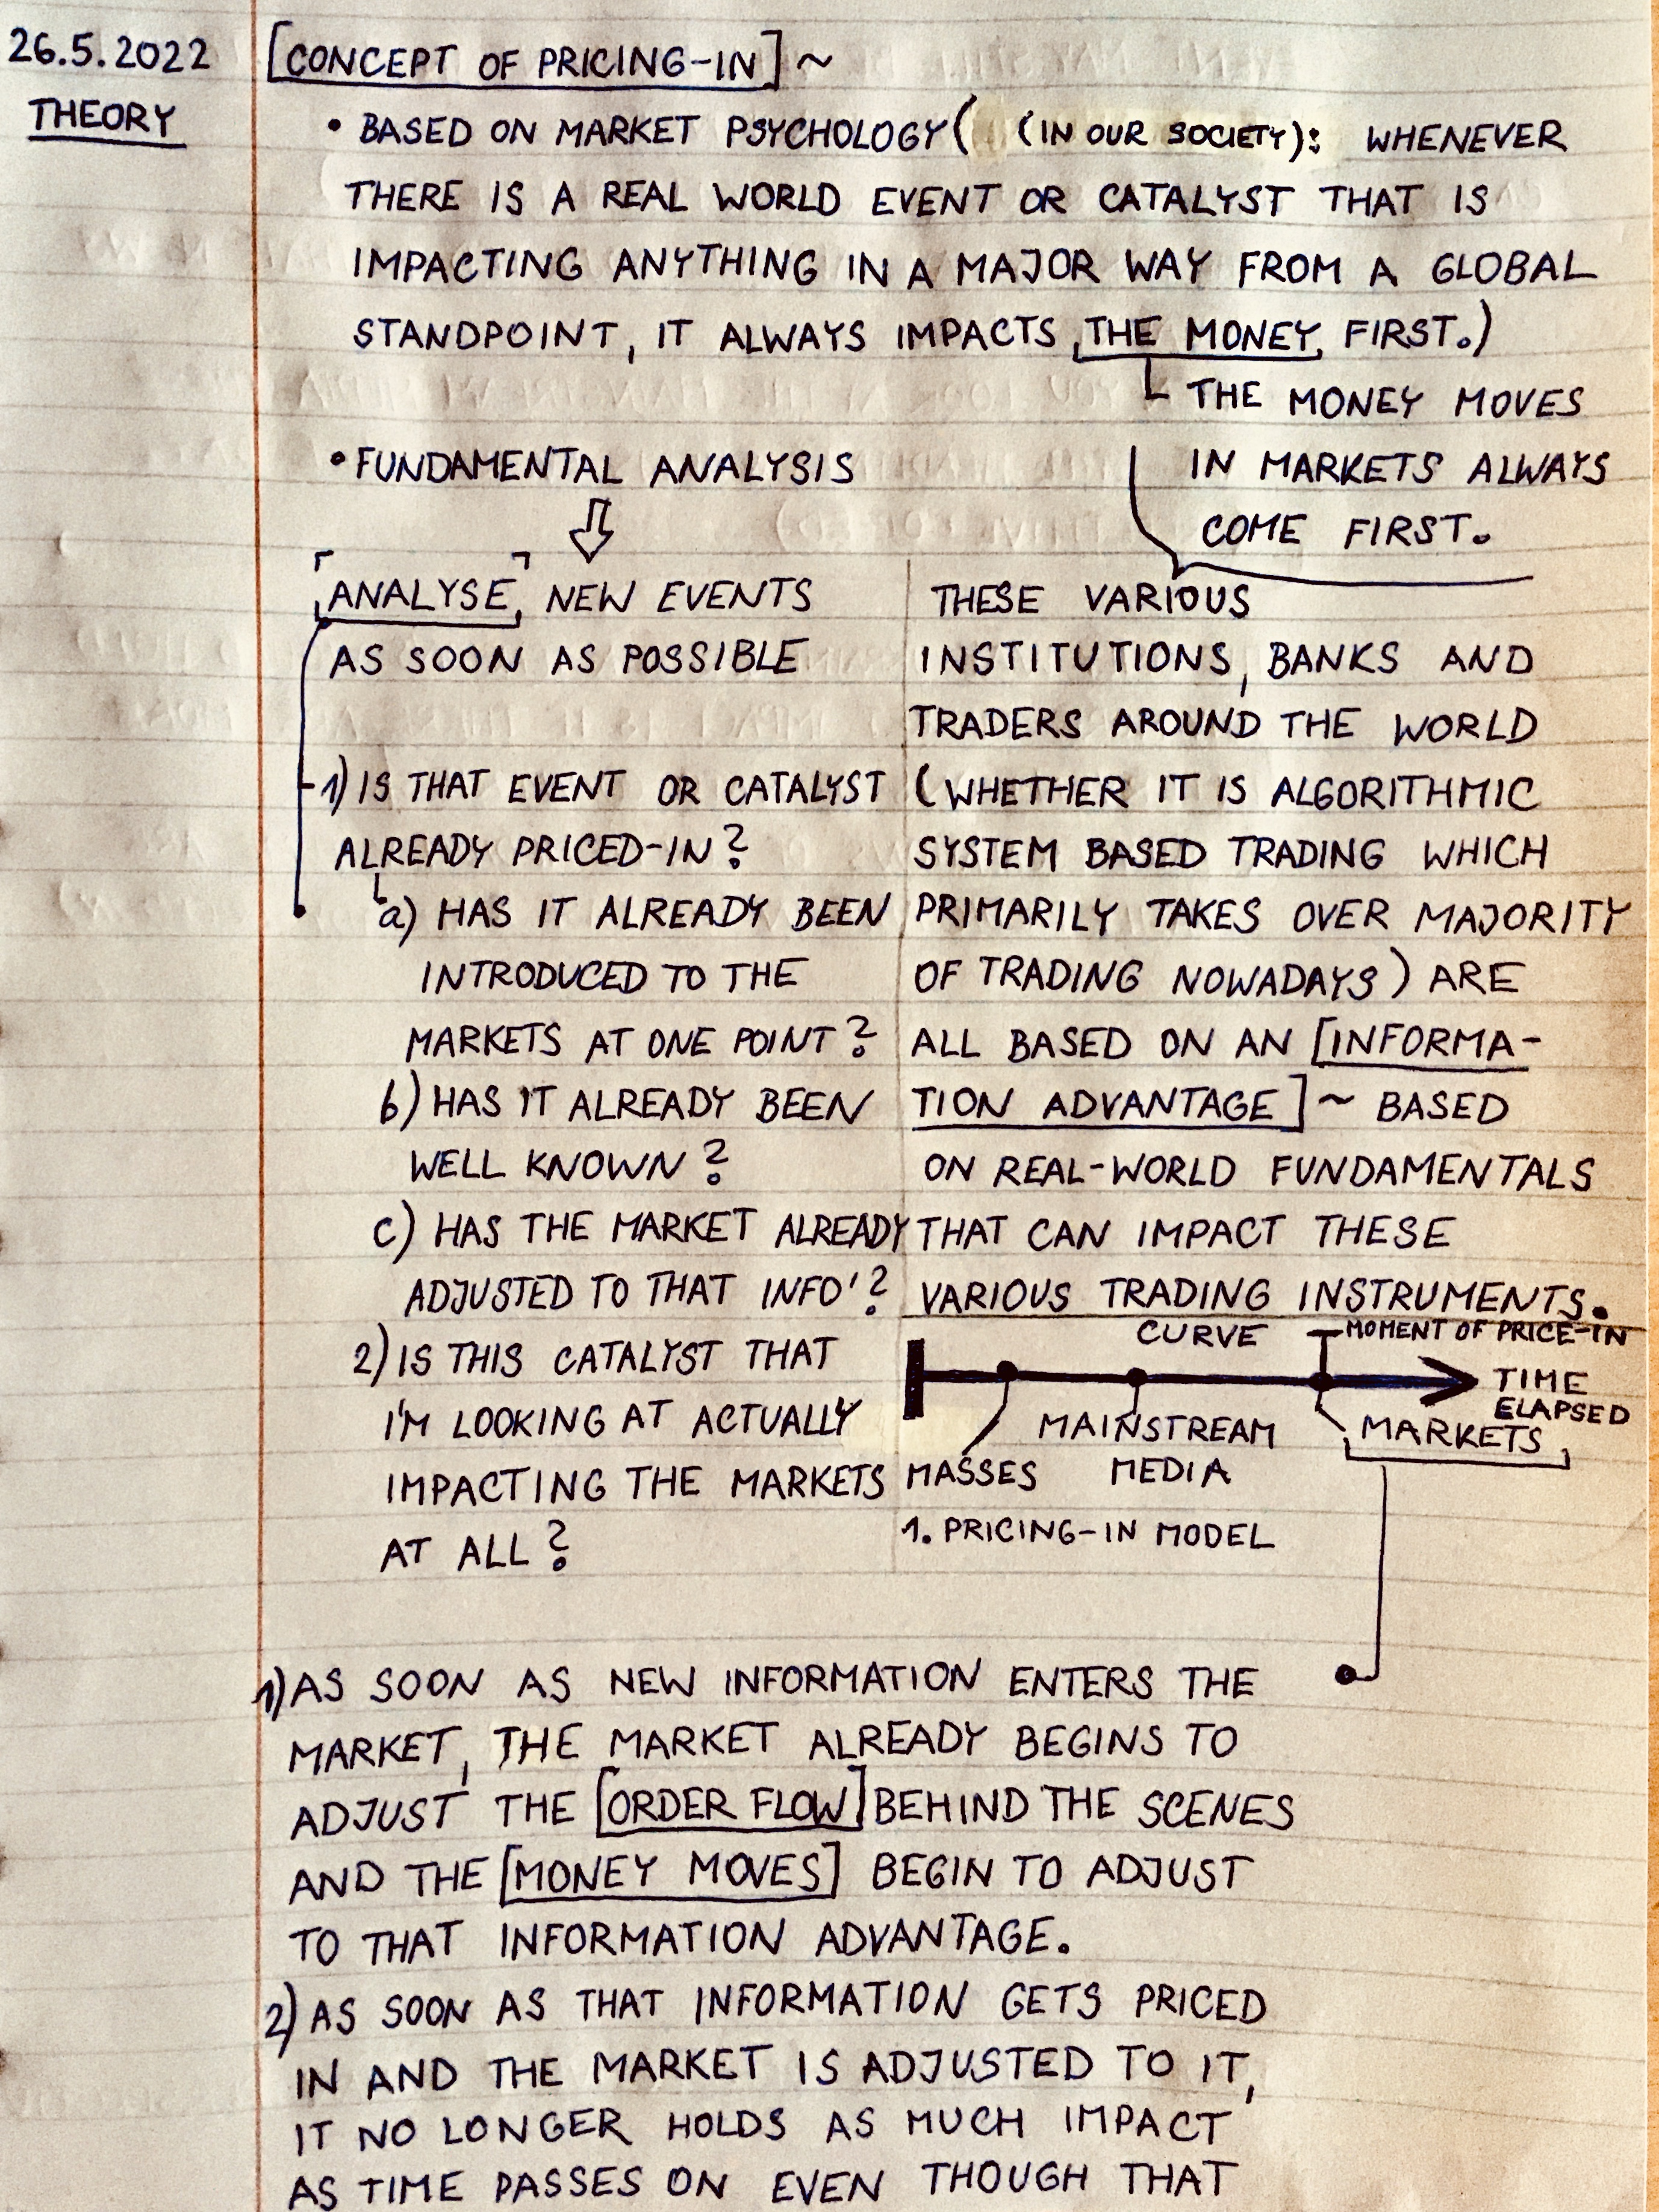 26.5.2022
THEORY
[CONCEPT OF PRICING-IN] ~
• BASED ON MARKET PSYCHOLOGY( (IN OUR SOCIETY): WHENEVER
THERE IS A REAL WORLD EVENT OR CATALYST THAT IS
IMPACTING ANYTHING IN A MAJOR WAY FROM A GLOBAL
STANDPOINT, IT ALWAYS IMPACTS THE MONEY FIRST.)
THE MONEY MOVES
IN MARKETS ALWAYS
COME FIRST.
• FUNDAMENTAL ANALYSIS
ANALYSE NEW EVENTS
AS SOON AS POSSIBLE
1) IS THAT EVENT OR CATALYST
ALREADY PRICED-IN?
a) HAS IT ALREADY BEEN
INTRODUCED TO THE
MARKETS AT ONE POINT?
b) HAS IT ALREADY BEEN
WELL KNOWN?
c) HAS THE MARKET ALREADY
ADJUSTED TO THAT INFO'?
2) IS THIS CATALYST THAT
I'M LOOKING AT ACTUALLY
IMPACTING THE MARKETS
AT ALL?
THESE VARIOUS
INSTITUTIONS, BANKS AND
TRADERS AROUND THE WORLD
(WHETHER IT IS ALGORITHMIC
SYSTEM BASED TRADING WHICH
PRIMARILY TAKES OVER MAJORITY
OF TRADING NOWADAYS) ARE
ALL BASED ON AN [INFORMA-
TION ADVANTAGE] ~ BASED
ON REAL-WORLD FUNDAMENTALS
THAT CAN IMPACT THESE
VARIOUS TRADING INSTRUMENTS.
CURVE
MOMENT OF PRICE-IN
TIME
ELAPSED
MASSES
MAINSTREAM
MEDIA
MARKETS
1. PRICING-IN MODEL
1) AS SOON AS NEW INFORMATION ENTERS THE
MARKET, THE MARKET ALREADY BEGINS TO
ADJUST THE [ORDER FLOW] BEHIND THE SCENES
AND THE [MONEY MOVES] BEGIN TO ADJUST
TO THAT INFORMATION ADVANTAGE.
2) AS SOON AS THAT INFORMATION GETS PRICED
IN AND THE MARKET IS ADJUSTED TO IT,
IT NO LONGER HOLDS AS MUCH IMPACT
AS TIME PASSES ON EVEN THOUGH THAT